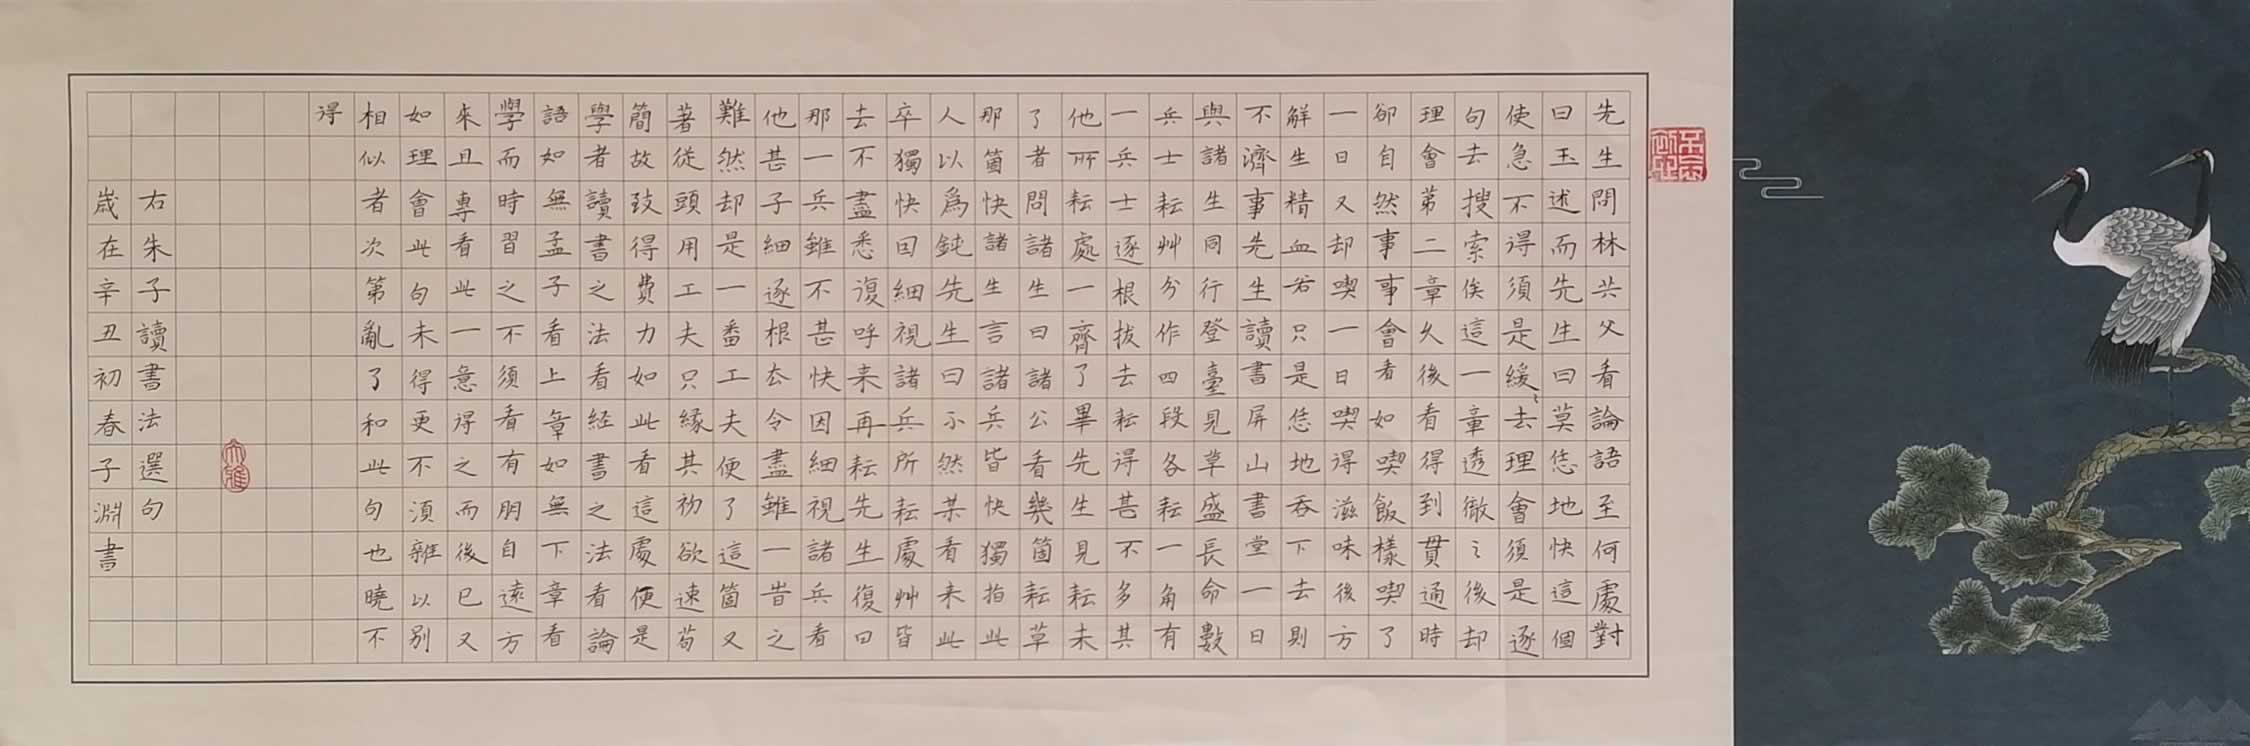 先生問林共父看論語至何處對
曰玉述而先生曰莫恁地快這個
使急不得須是緩〻去理會須是逐
句去搜索俟這一章透徹之後却
理會第二章久後看得到貫通時
卻自然事事會看如喫飯樣喫了
一日又却喫一日喫得滋味後方
解生精血若只是恁地吞下去則
不濟事先生讀書屏山書堂一日
與諸生同行登臺見草盛長命數
兵士耘艸分作四段各耘一角有
一兵士逐根拔去耘得甚不多其
他所耘處一齊了畢先生見耘未
了者問諸生曰諸公看幾箇耘草
那箇快諸生言諸兵皆快獨指此
人以為鈍先生曰不然某看来此
卒獨快因細視諸兵所耘處艸皆
去不盡悉復呼来再耘先生復曰
那一兵雖不甚快因細視諸兵看
他甚子細逐根去令盡雖一昔之
難然却是一番工夫便了這箇又
著從頭用工夫只緣其初欲速苟
簡故致得費力如此看這處便是
學者讀書之法看経書之法看論
語如無孟子看上章如無下章看
學而時習之不須看有朋自遠方
來且專看此一意得之而後已又
如理會此句未得更不須雜以別
相似者次第亂了和此句也曉不
得
大雅
右朱子讀書法選句
歲在辛丑初春子淵書